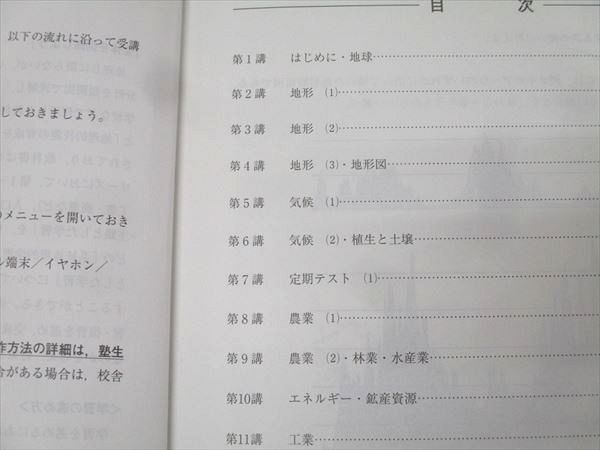 以下の流れに沿って受講
しておきましょう。
のメニューを開いておき
ル端末／イヤホン／
作方法の詳細は，塾生
合がある場合は，校舎
目 次
第1講 はじめに・地球
第2講 地形 (1)
第3講 地形 (2)
第4講 地形 (3)・地形図
第5講 気候 (1)
第6講 気候 (2)・植生と土壌
第7講 定期テスト (1)
第8講 農業 (1)
第9講 農業 (2)・林業・水産業
第10講 エネルギー・鉱産資源
第11講 工業